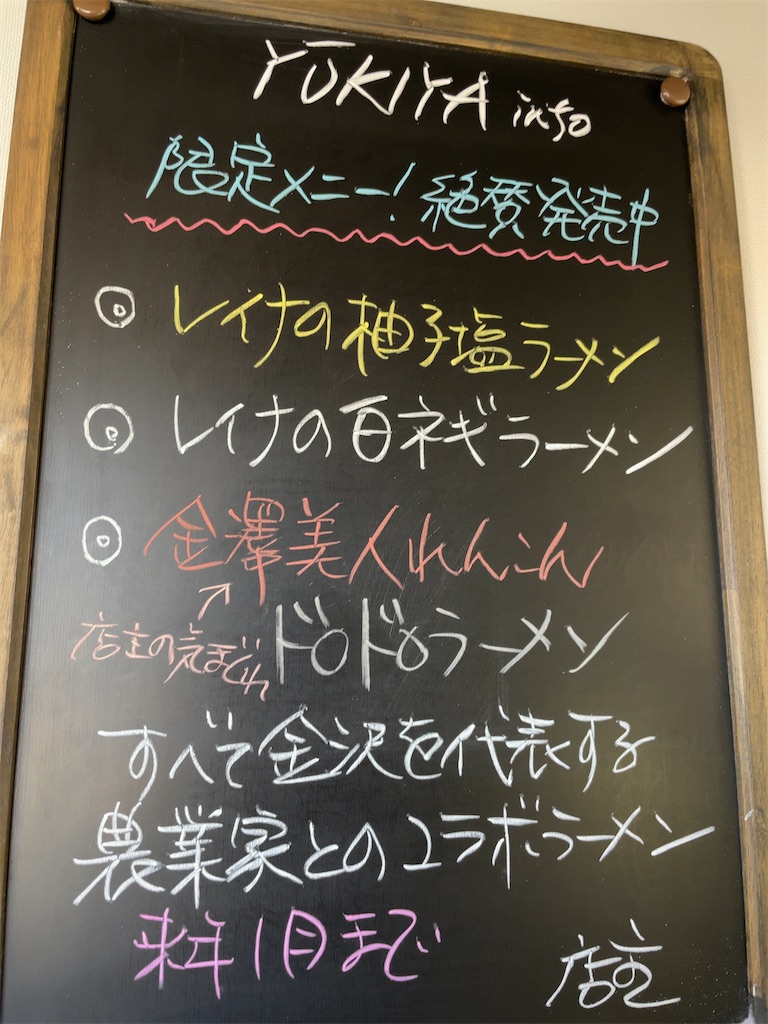 YŪKIYA info
限定メニー! 絶賛発売中
◎ レイナの柚子塩ラーメン
◎ レイナの白ネギラーメン
◎ 金澤美人れんこん
店主の気まぐれ ドロドロラーメン
すべて金沢を代表する
農業家とのコラボラーメン
来年1月まで
店主